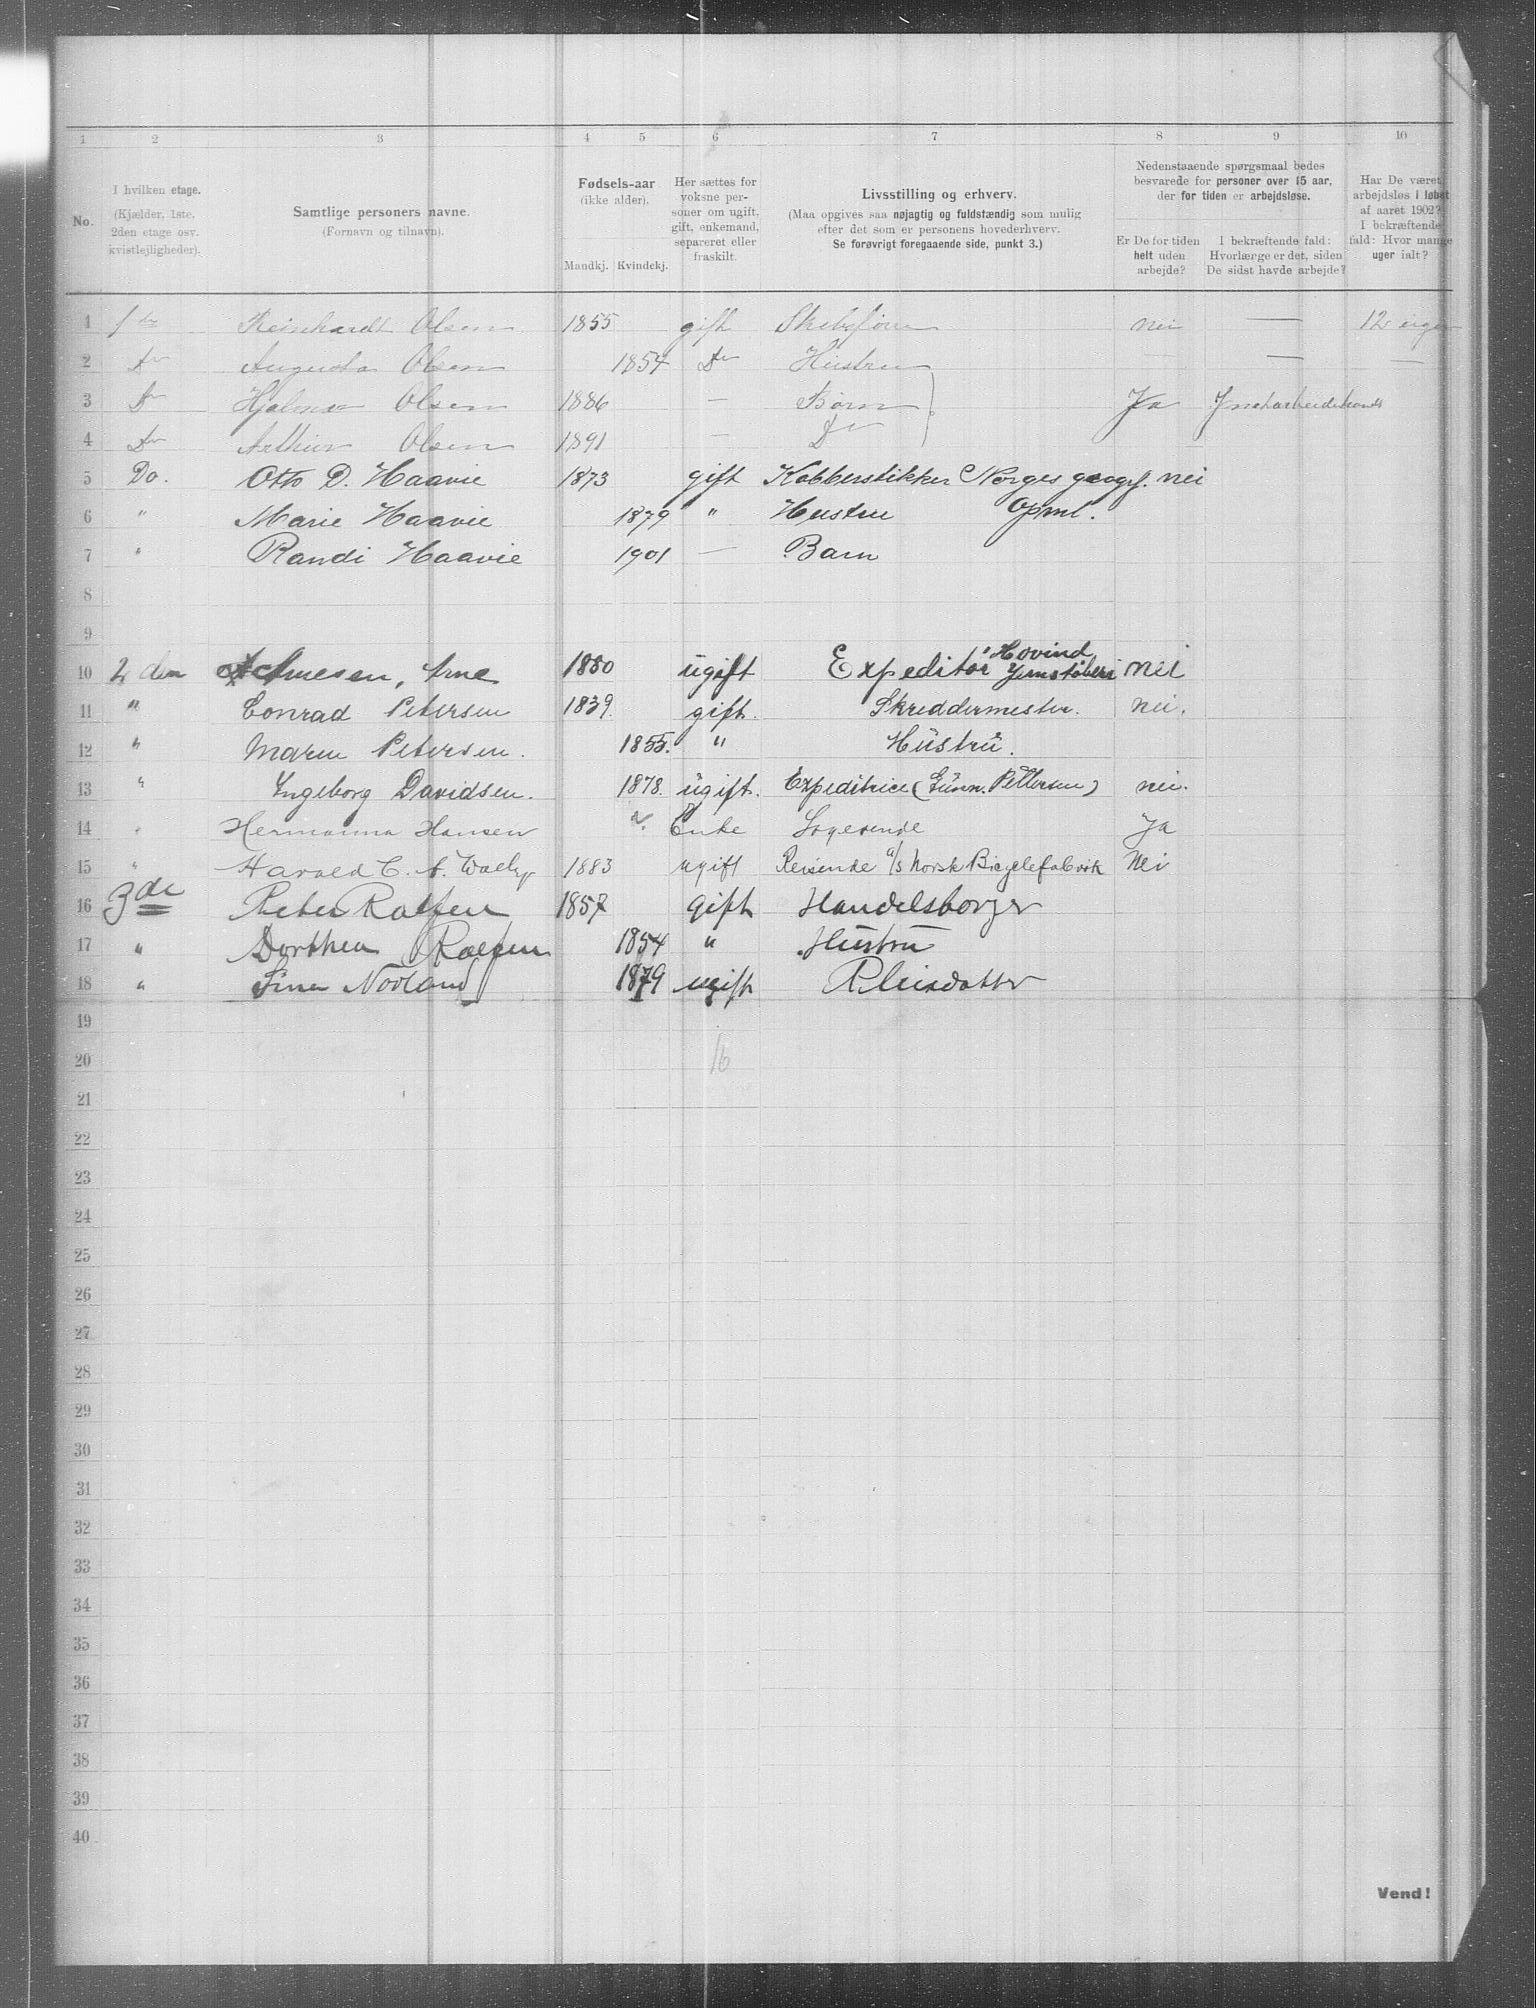 1 2 3 4 5 6 7 8 9 10
No.
I hvilken etage.
(Kjælder, 1ste.
2den etage osv.
kvistlejligheder).
Samtlige personers navne.
(Fornavn og tilnavn).
Fødsels-aar
(ikke alder).
Mandkj. Kvindekj.
Her sættes for
voksne per-
soner om ugift,
gift, enkemand,
separeret eller
fraskilt.
Livsstilling og erhverv.
(Maa opgives saa nøjagtig og fuldstændig som mulig
efter det som er personens hovederhverv.
Se forøvrigt foregaaende side, punkt 3.)
Nedenstaaende spørgsmaal bedes
besvarede for personer over 15 aar,
der for tiden er arbejdsløse.
Er De for tiden
helt uden
arbejde?
I bekræftende fald:
Hvorlænge er det, siden
De sidst havde arbejde?
Har De været
arbejdsløs i løbet
af aaret 1902?
I bekræftende
fald: Hvor mange
uger ialt?
1 Reinhardt Olsen 1855 gift nei — 12
2 Do Augusta Olsen 1854 Do Hustru — —
3 Do Hjalmar Olsen 1886 — Børn Ja
4 Do Arthur Olsen 1891 — Do
5 Do. Otto D. Haavie 1873 gift Kobberstikker Norges geogr. nei
6 " Marie Haavie 1879 " Hustru Opml.
7 " Randi Haavie 1901 — Barn
8
9
10 2den Arnesen, Arne 1880 ugift Expeditør i Hovind Jernstøberi nei
11 " Conrad Petersen 1839. gift. Skreddermester. nei.
12 " Maren Petersen. 1855. " Hustru.
13 " Ingeborg Davidsen. 1878. ugift. Expeditrice (Gunn. Pettersen) nei.
14 " Hermanna Hansen Enke Logerende Ja
15 " Harald C. 1883 ugift Reisende a/s Norsk Bicyclefabrik Nei
16 3de Peter 1857 gift Handelsborger
17 " Dorthea 1854 " Hustru
18 " 1879 ugift
19
20 16
21
22
23
24
25
26
27
28
29
30
31
32
33
34
35
36
37
38
39
40
Vend!